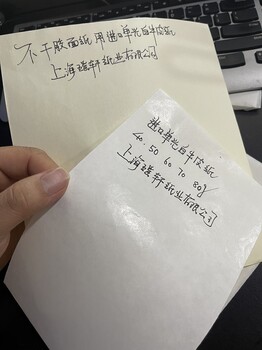 不干胶面纸用进口单光白牛皮纸
上海瑾轩纸业有限公司
进口单光白牛皮纸
40. 50 60 70 80g
上海瑾轩纸业有限公司